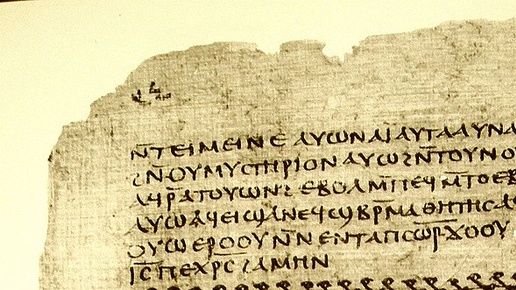 ⲛ̄ⲧⲉⲓⲙⲉⲓⲛⲉ ⲁⲩⲱⲛⲁⲓⲁⲩⲧⲁⲁⲩⲛⲁ
ϩⲛ̄ⲟⲩⲙⲩⲥⲧⲏⲣⲓⲟⲛⲁⲩⲱϩⲛ̄ⲧⲟⲩⲛⲟ
ⲁϥⲣ̄ⲁⲧⲟⲩⲱⲛϩ ⲉⲃⲟⲗⲙ̄ⲡⲉϥⲙ̄ⲧⲟⲉⲃ
ⲁⲩⲱⲁϥⲉⲓϣⲁⲛⲉϥϣⲃⲣ̄ⲙⲁⲑⲏⲧⲏⲥⲁ
ⲟⲩⲱⲉⲣⲟⲟⲩⲛ̄ⲛⲉⲛⲧⲁⲡⲥⲱ̄ⲣ̄ϫⲟⲟⲩ
ⲓ̄ⲥ̄ⲡⲉⲭ̄ⲣ̄ⲥ̄ϩⲁⲙⲏⲛ